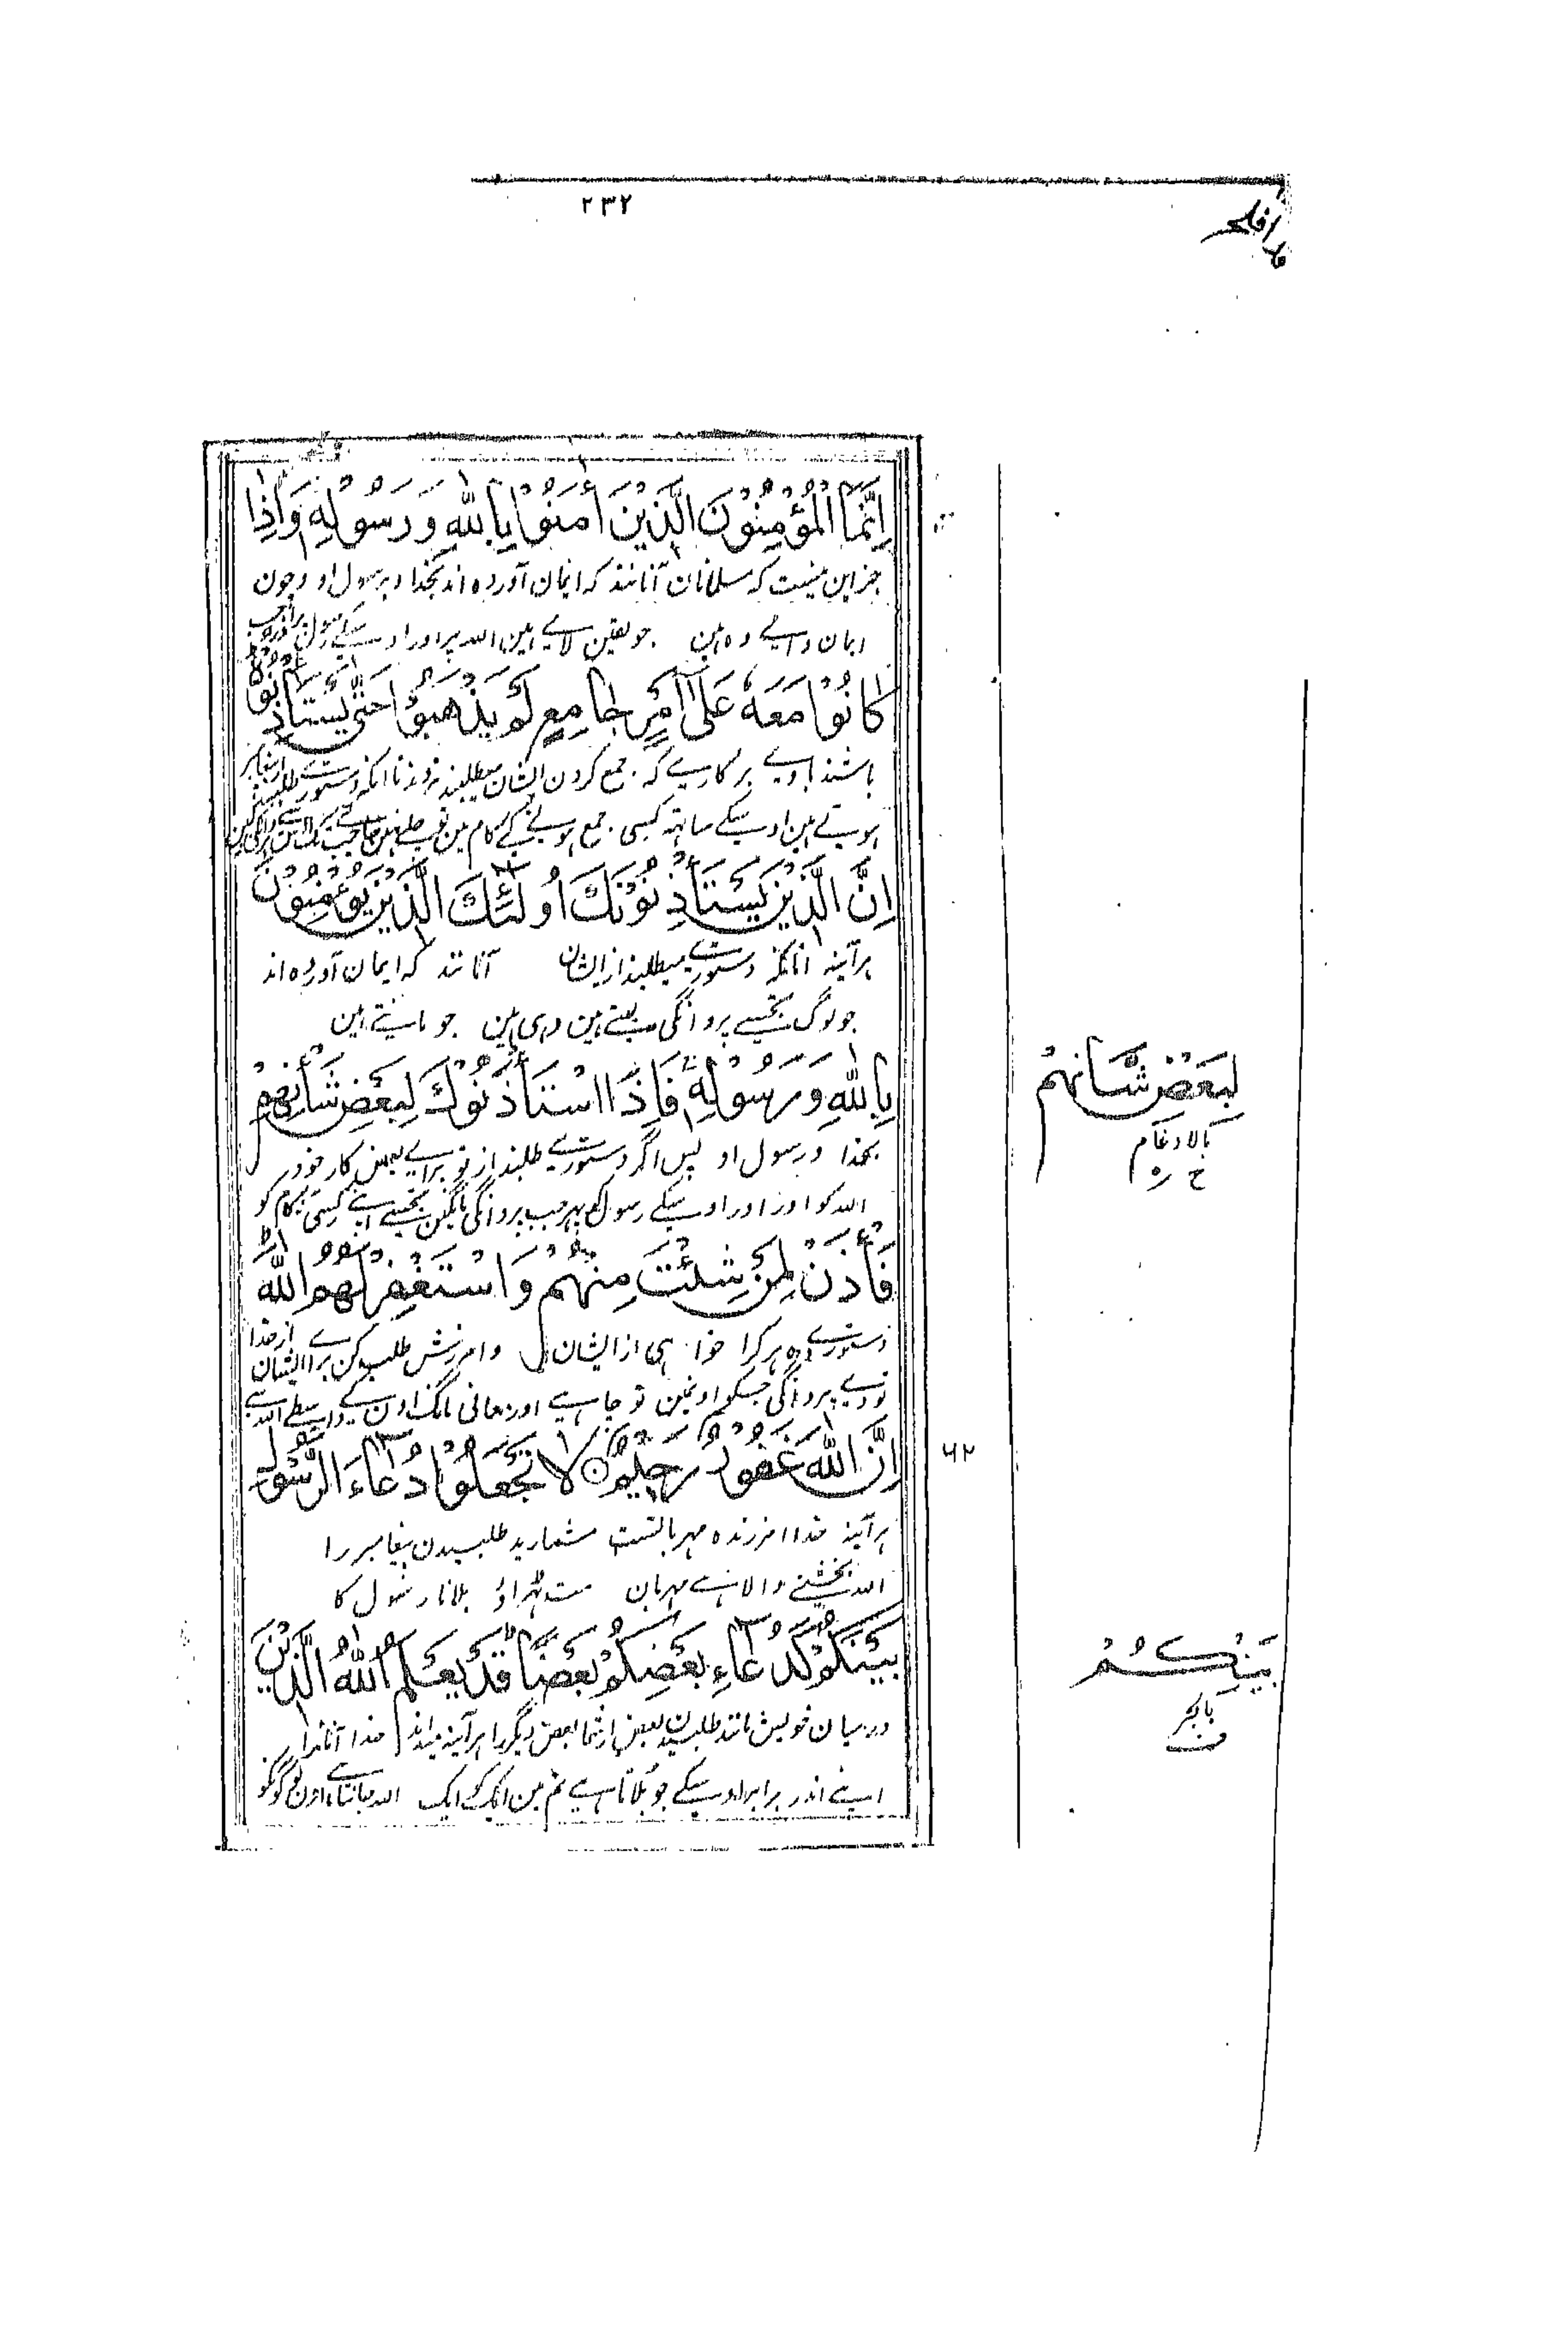 ۲۳۲
افلح
اِنَّمَا الْمُؤْمِنُوْنَ الَّذِيْنَ اٰمَنُوْا بِاللّٰهِ وَرَسُوْلِهٖ وَاِذَا
جز این نیست که مسلمانان آنانند که ایمان آورده اند بخدا و برسول او و چون
ایمان والے وہ ہین جو یقین لائے ہین اللہ پر اور اوسکے رسول پر اور جب
كَانُوْا مَعَهٗ عَلٰٓى اَمْرٍ جَامِعٍ لَّمْ يَذْهَبُوْا حَتّٰى يَسْتَاْذِنُوْهُ
باشند باوے بر کاریے که جمع کردن ایشان میطلبد نروند تا آنکه دستورے طلبند
ہوتے ہین اوسکے ساتھہ کسی جمع ہونے کے کام مین تو چلے نہین جاتے جب تک
اِنَّ الَّذِيْنَ يَسْتَاْذِنُوْنَكَ اُولٰٓئِكَ الَّذِيْنَ يُؤْمِنُوْنَ
هر آینه آنانکه دستورے میطلبند از ایشان آنانند که ایمان آورده اند
جو لوگ تجھسے پروانگی لیتے ہین وہی ہین جو مانتے ہین
بِاللّٰهِ وَرَسُوْلِهٖ فَاِذَا اسْتَاْذَنُوْكَ لِبَعْضِ شَاْنِهِمْ
بخدا و رسول او پس اگر دستورے طلبند از تو برائے بعض کار خود
اللہ کو اور اوسکے رسول کو پہر جب پروانگی مانگین تجھسے اپنے کسی کام کو
لِبَعْضِ شَّانِهِمْ
بالادغام
ح ره
فَاْذَنْ لِّمَنْ شِئْتَ مِنْهُمْ وَاسْتَغْفِرْ لَهُمُ اللّٰهَ
دستورے ده هر کرا خواهی از ایشان و امرزش طلب کن برا ایشان از خدا
تو دے پروانگی جسکو اونمین تو چاہے اور معافی مانگ اون کے واسطے اللہ سے
اِنَّ اللّٰهَ غَفُوْرٌ رَّحِيْمٌ لَا تَجْعَلُوْا دُعَآءَ الرَّسُوْلِ
۶۲
هر آینه خدا امرزنده مهربانست مشمارید طلبیدن پیغامبر را
اللہ بخشنے والا ہے مہربان مت ٹھہراؤ بلانا رسول کا
بَيْنَكُمْ كَدُعَآءِ بَعْضِكُمْ بَعْضًا قَدْ يَعْلَمُ اللّٰهُ الَّذِيْنَ
در میان خویش مانند طلبیدن بعض از شما بعض دیگر را هر آینه میداند خدا آنانرا
اپنے اندر برابر اوسکے جو بلاتا ہے تم مین ایک کو ایک اللہ جانتا ہے اون لوگونکو
بَيْنِكُمْ
بالجر
ف